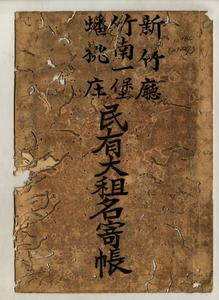 新竹廳
竹南一堡
蟠桃庄
民有大租名寄帳